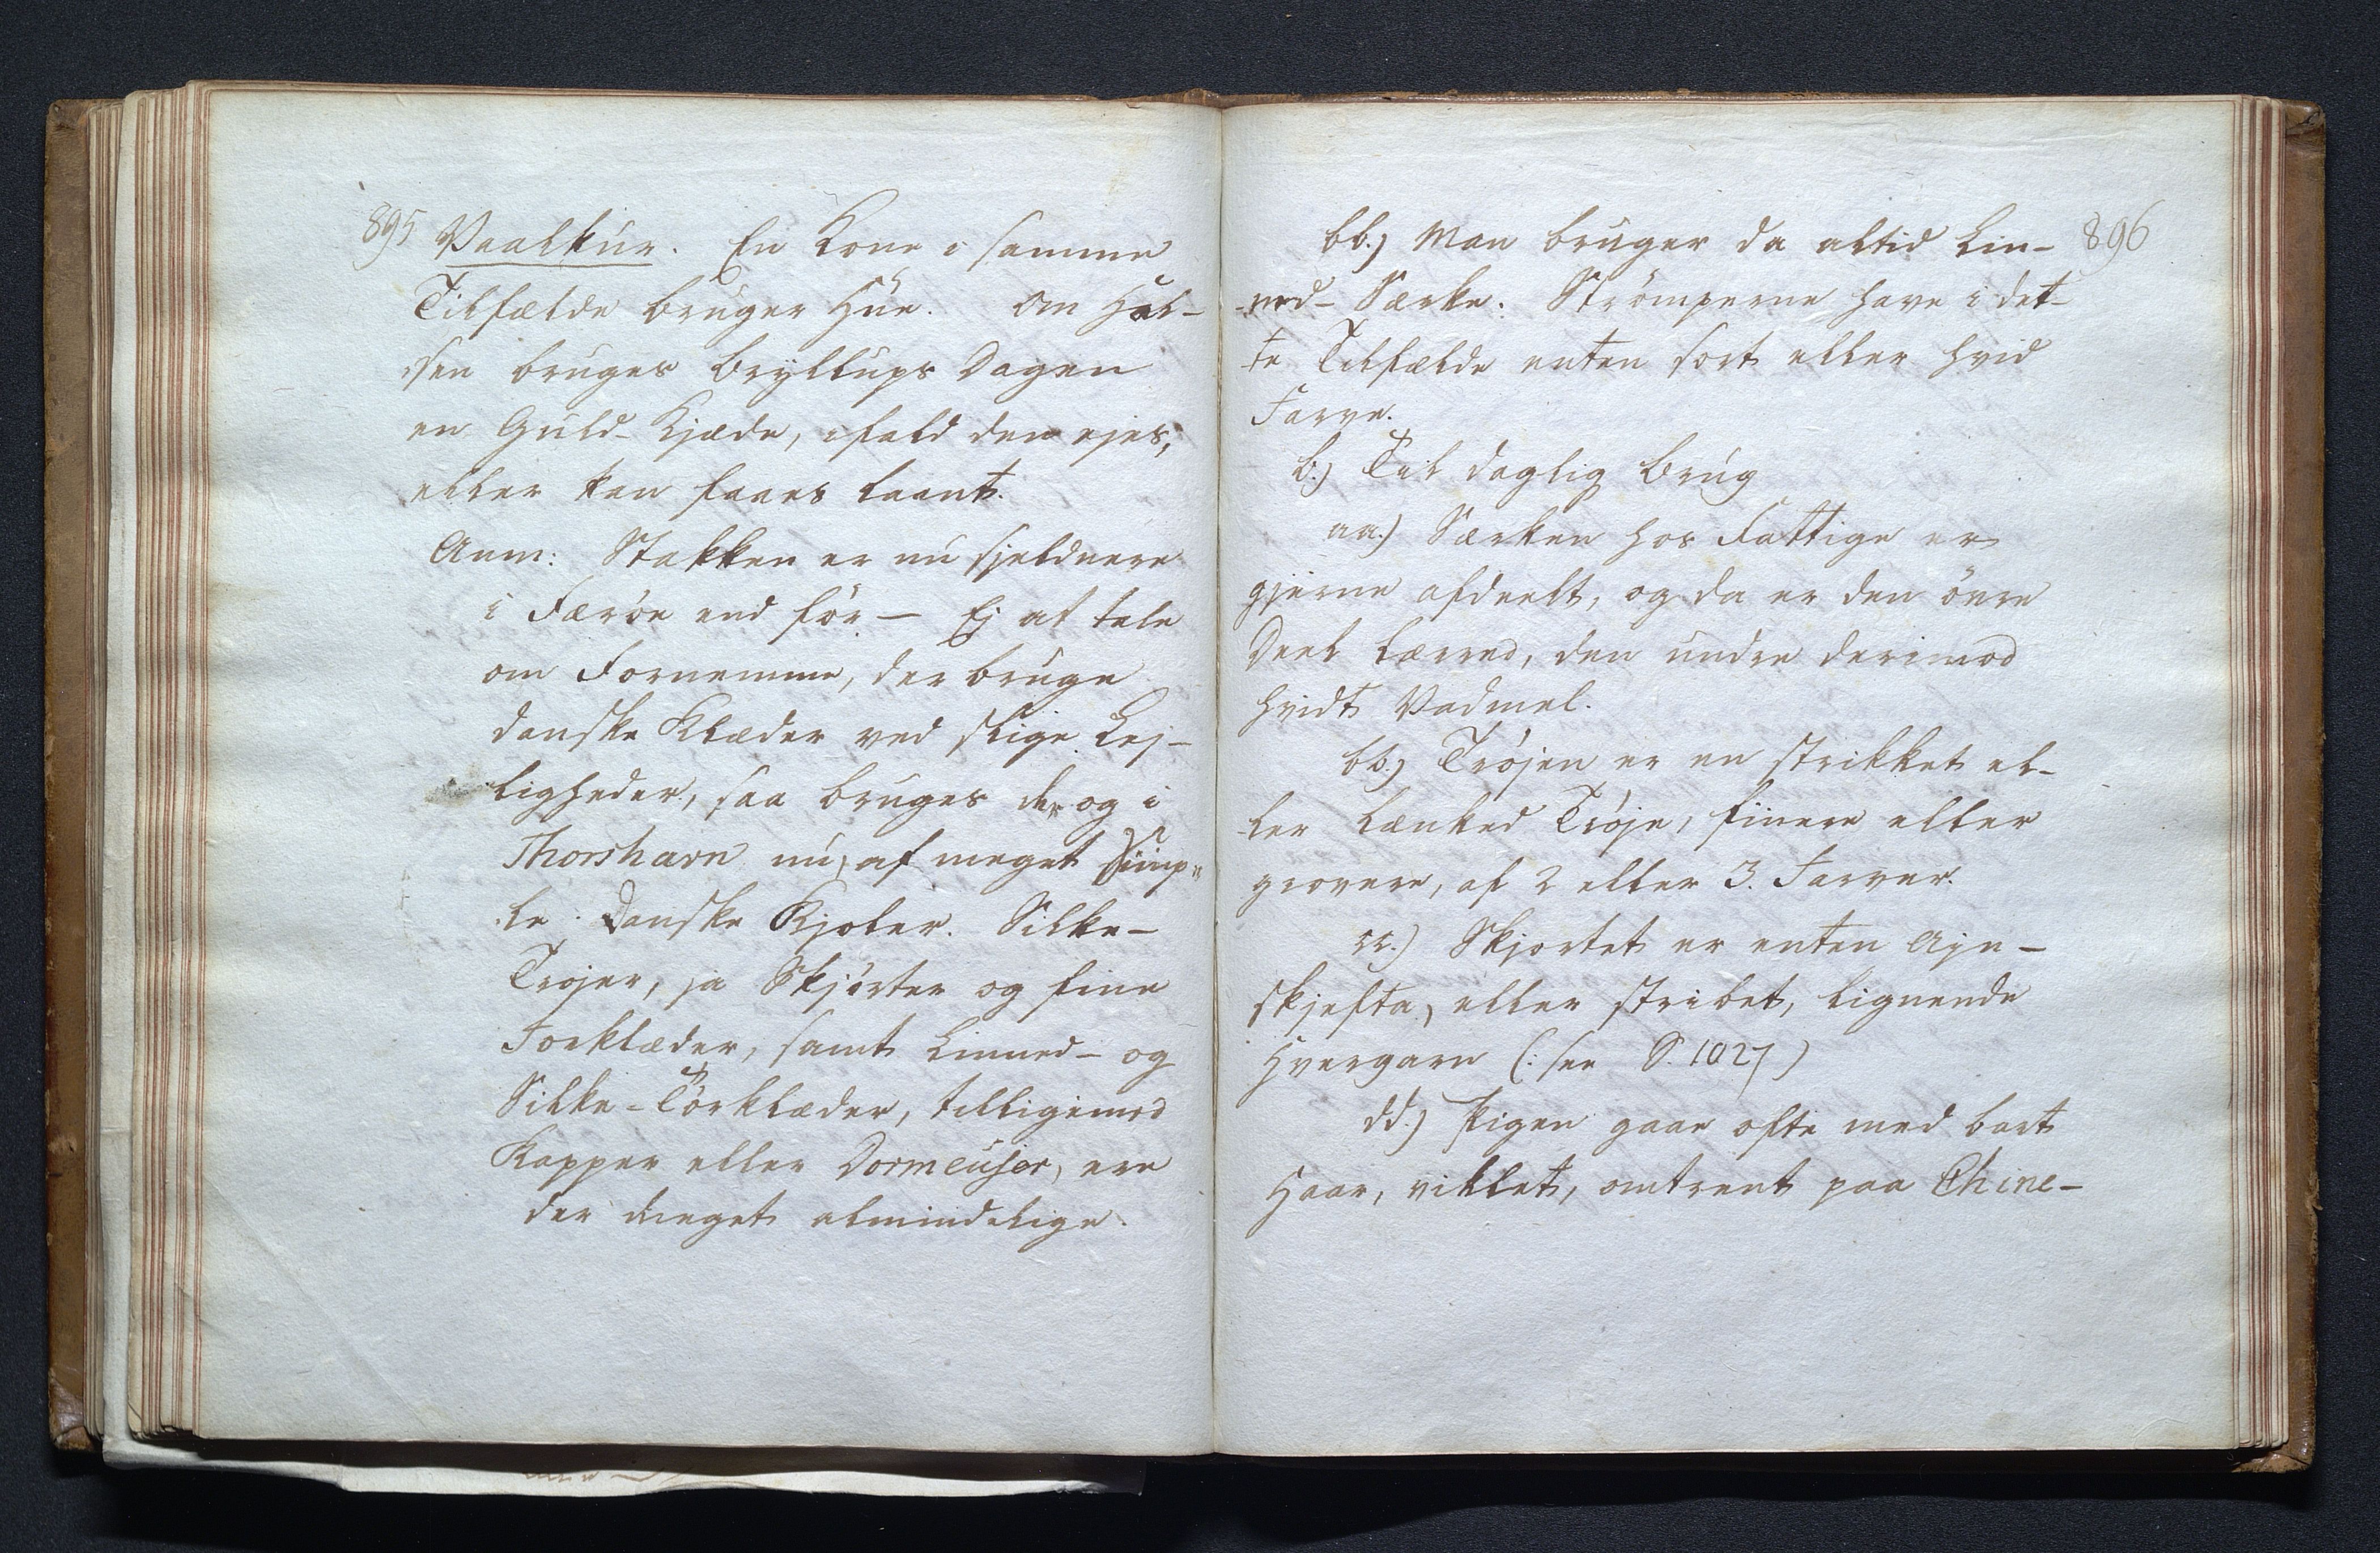 895
Vaalkur. En Kone i samme
Tilfælde bruger Hue. Om Hal-
sen bruges Bryllups Dagen
en Guld-Kjæde, ifald den ejes,
eller kan faaes laant.
Anm: Stakken er nu sjeldnere
i Færøe end før — Ej at tale
om Fornemme, der bruge
danske Klæder ved slige Lej-
ligheder, saa bruges der og i
Thorshavn nu, af meget Simp-
le Danske Kjoler. Silke-
Trøjer, ja Skjørter og fine
Forklæder, samt Linned- og
Silke-Tørklæder, tilligemed
Kapper eller Dormeuser, ere
der meget almindelige.
896
bb.) Man bruger da altid Lin-
-ned-Særke. Strømperne have i det-
-te Tilfælde enten sort eller hvid
Farve.
b.) Til daglig Brug
aa.) Særken hos Fattige er
gjerne afdeelt, og da er den øvre
Deel Lærred, den undre derimod
hvidt Vadmel.
bb.) Trøjen er en strikket el-
-ler lænked Trøje, finere eller
grovere, af 2 eller 3. Farver.
cc.) Skjortet er enten Ajn-
skjefta, eller stribet, lignende
Hvergarn (: see S. 1027)
dd.) Pigen gaar ofte med bart
Haar, viklet, omtrent paa Chine-